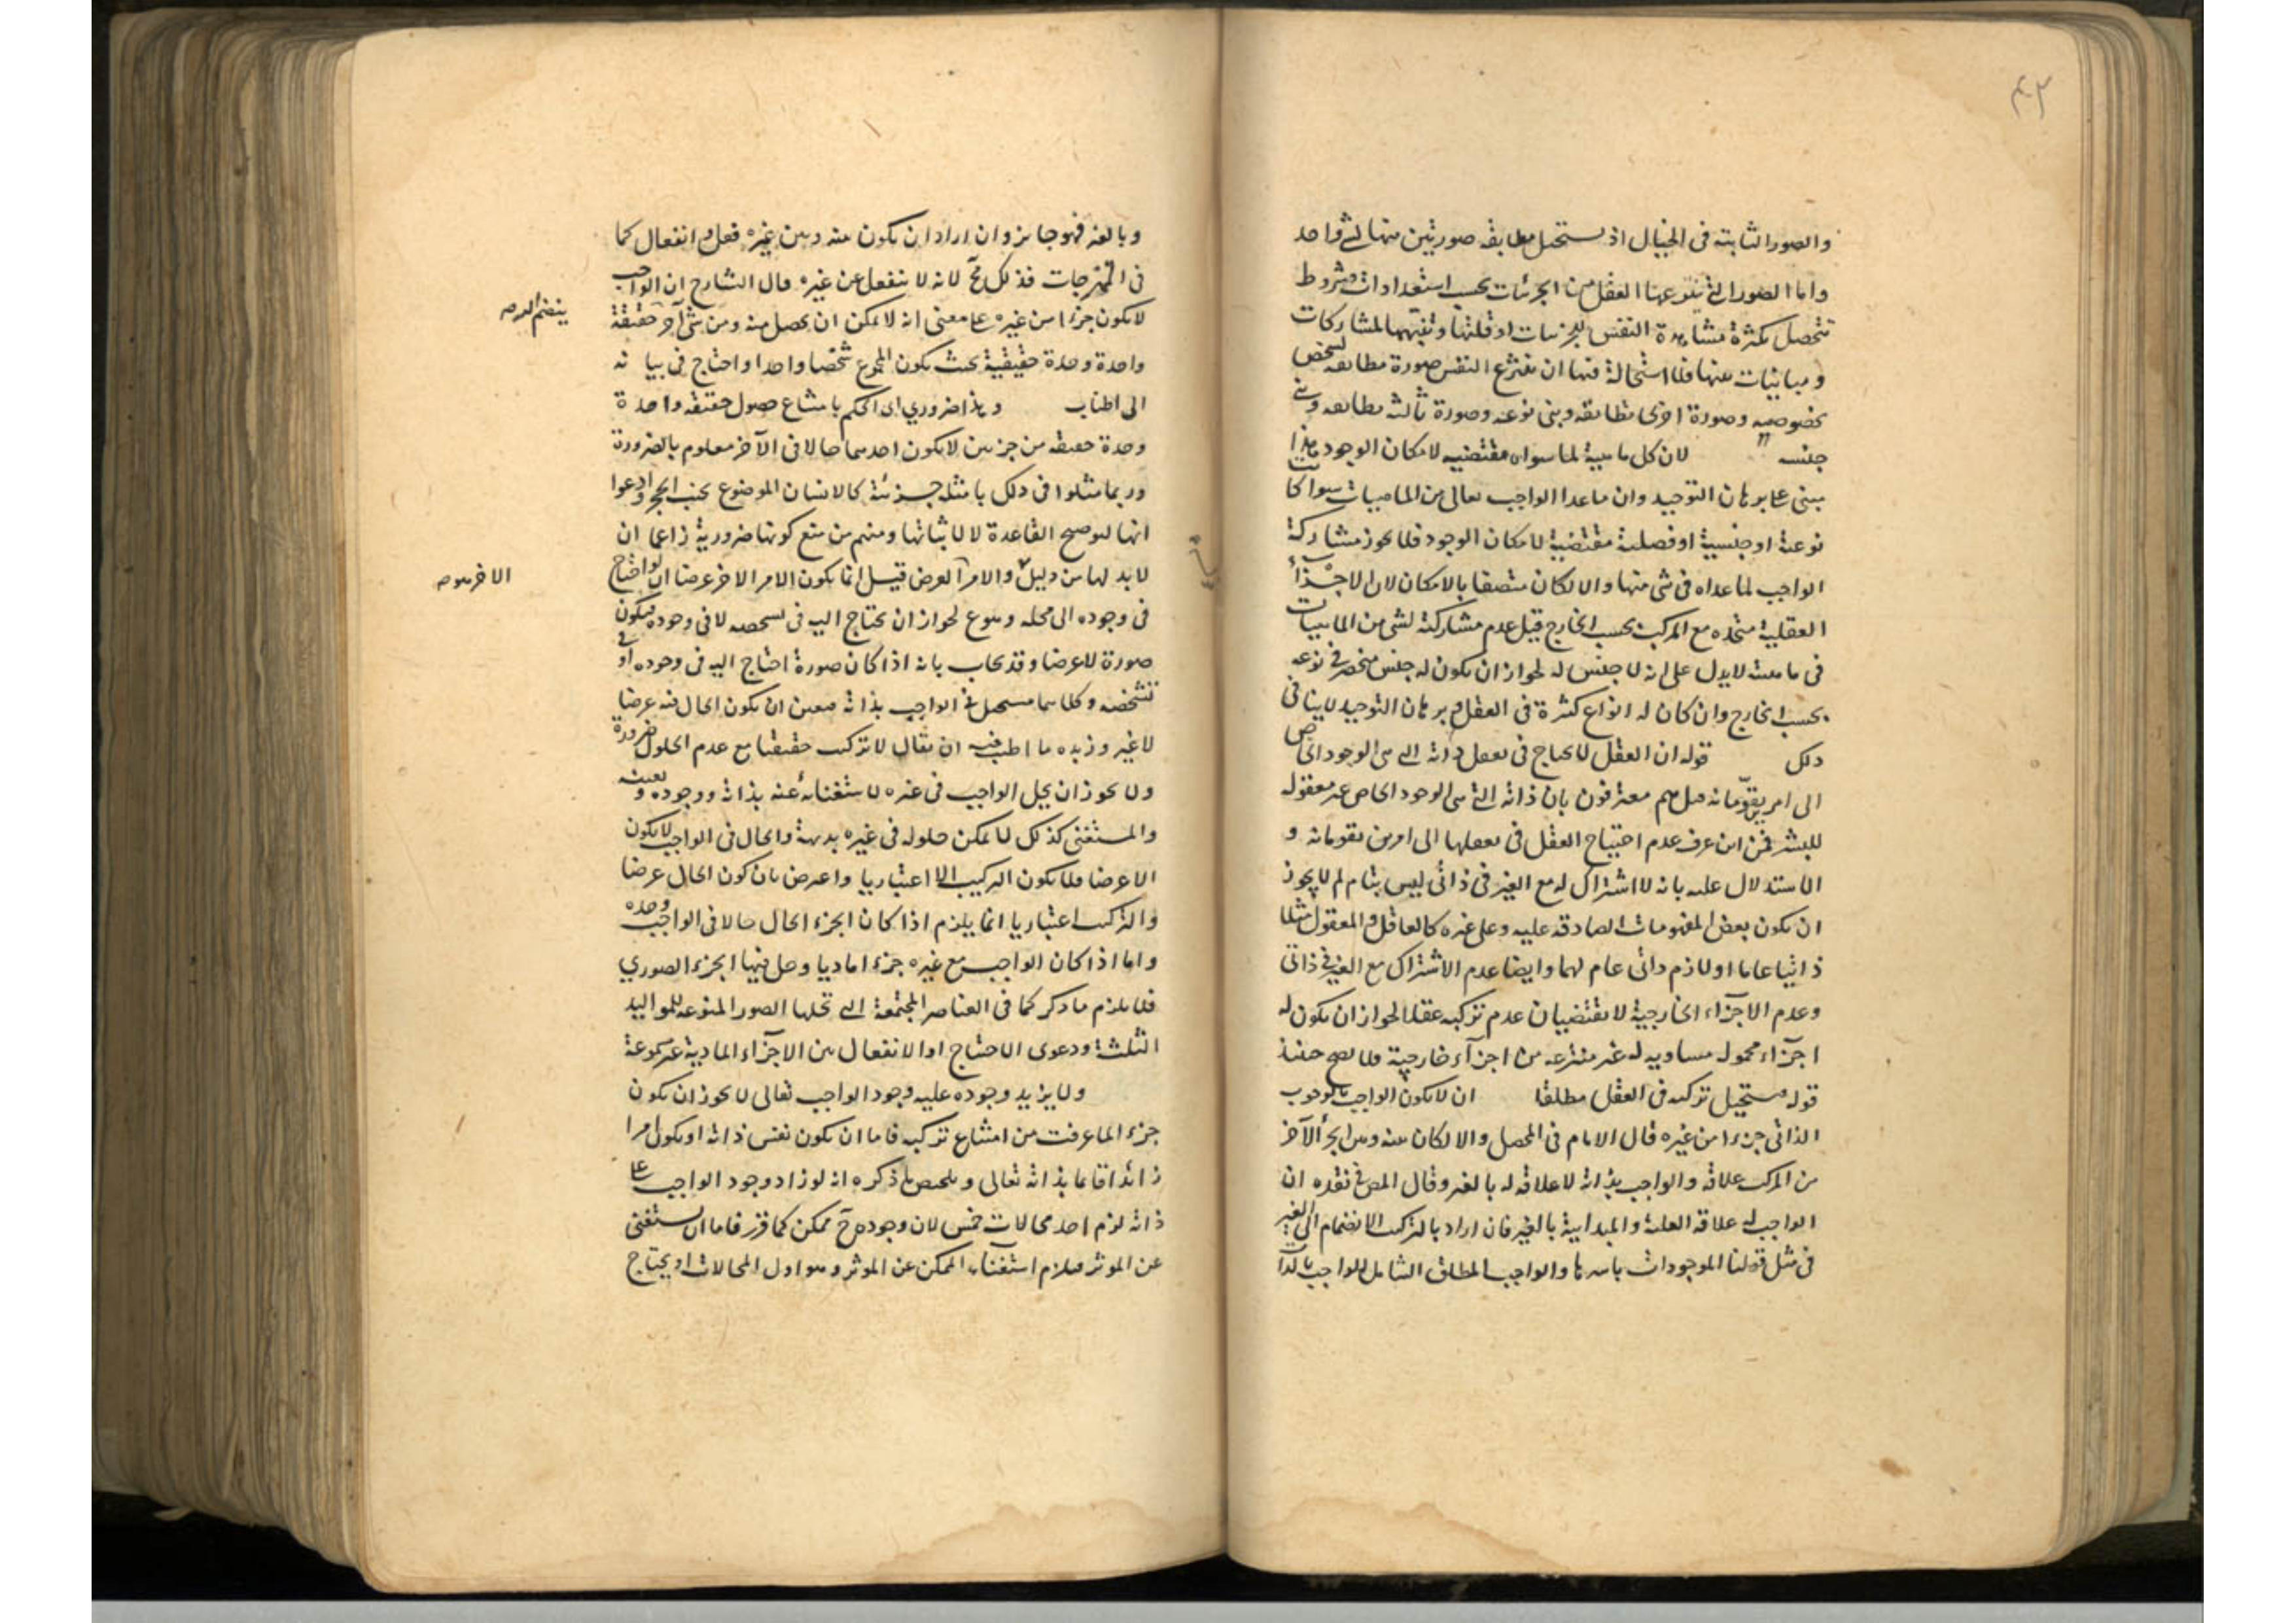 ٤٣
والصور الثابتة فى الخيال اذ يستحيل مطابقة صورتين منها لشئ واحد
واما الصور التى ينتزعها العقل من الجزئيات بحسب استعدادات وشروط
تتحصل بكثرة مشاهدة النفس للجزئيات او قلتها وتنبهها لمشاركات
ومباينات بينها فلا استحالة فيها ان ينتزع النفس صورة مطابقة لشخص
بخصوصه وصورة اخرى تطابقه وبنى نوعه وصورة ثالثة تطابقه وبنى
جنسه لان كل ماهية لما سواه مقتضية لامكان الوجود هذا
مبنى على برهان التوحيد وان ماعدا الواجب تعالى من الماهيات سواء كانت
نوعية او جنسية او فصلية مقتضية لامكان الوجود فلا يجوز مشاركة
الواجب لما عداه فى شئ منها والا لكان متصفا بالامكان لان الاجزاء
العقلية متحده مع المركب بحسب الخارج قيل عدم مشاركته لشئ من الماهيات
فى ماهيته لا يدل على انه لا جنس له لجواز ان يكون له جنس منحصر فى نوعه
بحسب الخارج وان كان له انواع كثيرة فى العقل وبرهان التوحيد لا ينافى
ذلك قوله ان العقل لا يحتاج فى تعقل ذاته التى هى الوجود الخاص
الى امر يقوّمانه قيل هم معترفون بان ذاته التى هى الوجود الخاص غير معقوله
للبشر فمن اين عرف عدم احتياج العقل فى تعقلها الى امرين يقومانه و
الاستدلال عليه بانه لا اشتراك له مع الغير فى ذاتى ليس بتام لم لا يجوز
ان يكون بعض المفهومات الصادقه عليه وعلى غيره كالعاقل والمعقول مثلا
ذاتيا عاما او لازم ذاتى عام لهما وايضا عدم الاشتراك مع الغير فى ذاتى
وعدم الاجزاء الخارجية لا يقتضيان عدم تركبه عقلا لجواز ان يكون له
اجزاء محموله مساويه له غير منتزعه من اجزاء خارجية فلا يصح حينئذ
قوله مستحيل تركبه فى العقل مطلقا ان لا يكون الواجب بالوجوب
الذاتى جزءا من غيره قال الامام فى المحصل والا لكان بينه وبين الجزء الآخر
من المركب علاقة والواجب بذاته لا علاقه له بالغير وقال المص فى نقده ان
الواجب له علاقة العلية والمبدائية بالغير فان اراد بالتركيب الانضمام الى الغير
فى مثل قولنا الموجودات باسرها والواجب المطلق الشامل للواجب بالذات
وبالغير فهو جايز وان اراد ان يكون بينه وبين غيره فعل وانفعال كما
فى الممتزجات فذلك مح لانه لا ينفعل عن غيره قال الشارح ان الواجب
لا يكون جزءا من غيره على معنى انه لا يمكن ان يحصل منه ومن شئ آخر حقيقة
واحدة وحدة حقيقية بحيث يكون المجموع شخصا واحدا واحتاج فى بيانه
الى اطناب وهذا ضرورى اى الحكم بامتناع حصول حقيقة واحدة
وحدة حقيقة من جزءين لا يكون احدهما حالا فى الآخر معلوم بالضرورة
وربما مثلوا فى ذلك بامثلة جزئية كالانسان الموضوع بجنب الحجر وادعوا
انها لتوضيح القاعدة لا لاثباتها ومنهم من منع كونها ضرورية زاعما ان
لابد لها من دليل والامر العرض قيل انما يكون الامر الاخر عرضا ان لو احتاج
فى وجوده الى محله وهو ممنوع لجواز ان يحتاج اليه فى تشخصه لا فى وجوده فيكون
صورة لا عرضا وقد يجاب بانه اذا كان صورة احتاج اليه فى وجوده او فى
تشخصه وكلاهما مستحيل فى الواجب بذاته فتعين ان يكون الحال فيه عرضا
لا غير وزبده ما اطنب فيه ان يقال لا تركيب حقيقيا مع عدم الحلول ضرورة
ولا يجوز ان يحل الواجب فى غيره لاستغنائه عنه بذاته ووجوده وتعينه
والمستغنى كذلك لا يمكن حلوله فى غيره بديهة والحال فى الواجب لا يكون
الا عرضا فلا يكون التركيب الا اعتباريا واعترض بان كون الحال عرضا
والتركيب اعتباريا انما يلزم اذا كان الجزء الحال حالا فى الواجب وحده
واما اذا كان الواجب مع غيره جزءا ماديا وحل فيها الجزء الصورى
فلا يلزم ما ذكر كما فى العناصر المجتمعة التى تحلها الصور المنوعة للمواليد
الثلثة ودعوى الاحتياج او الانفعال بين الاجزاء المادية غير مسموعة
ولا يزيد وجوده عليه وجود الواجب تعالى لا يجوز ان يكون
جزءا لما عرفت من امتناع تركبه فاما ان يكون نفس ذاته او يكون امرا
زائدا قائما بذاته تعالى وملخص ما ذكره انه لو زاد وجود الواجب على
ذاته لزم احد محالات خمس لان وجوده ح ممكن كما قرر فاما ان يستغنى
عن الموثر فيلزم استغناء الممكن عن الموثر وهو اول المحالات او يحتاج